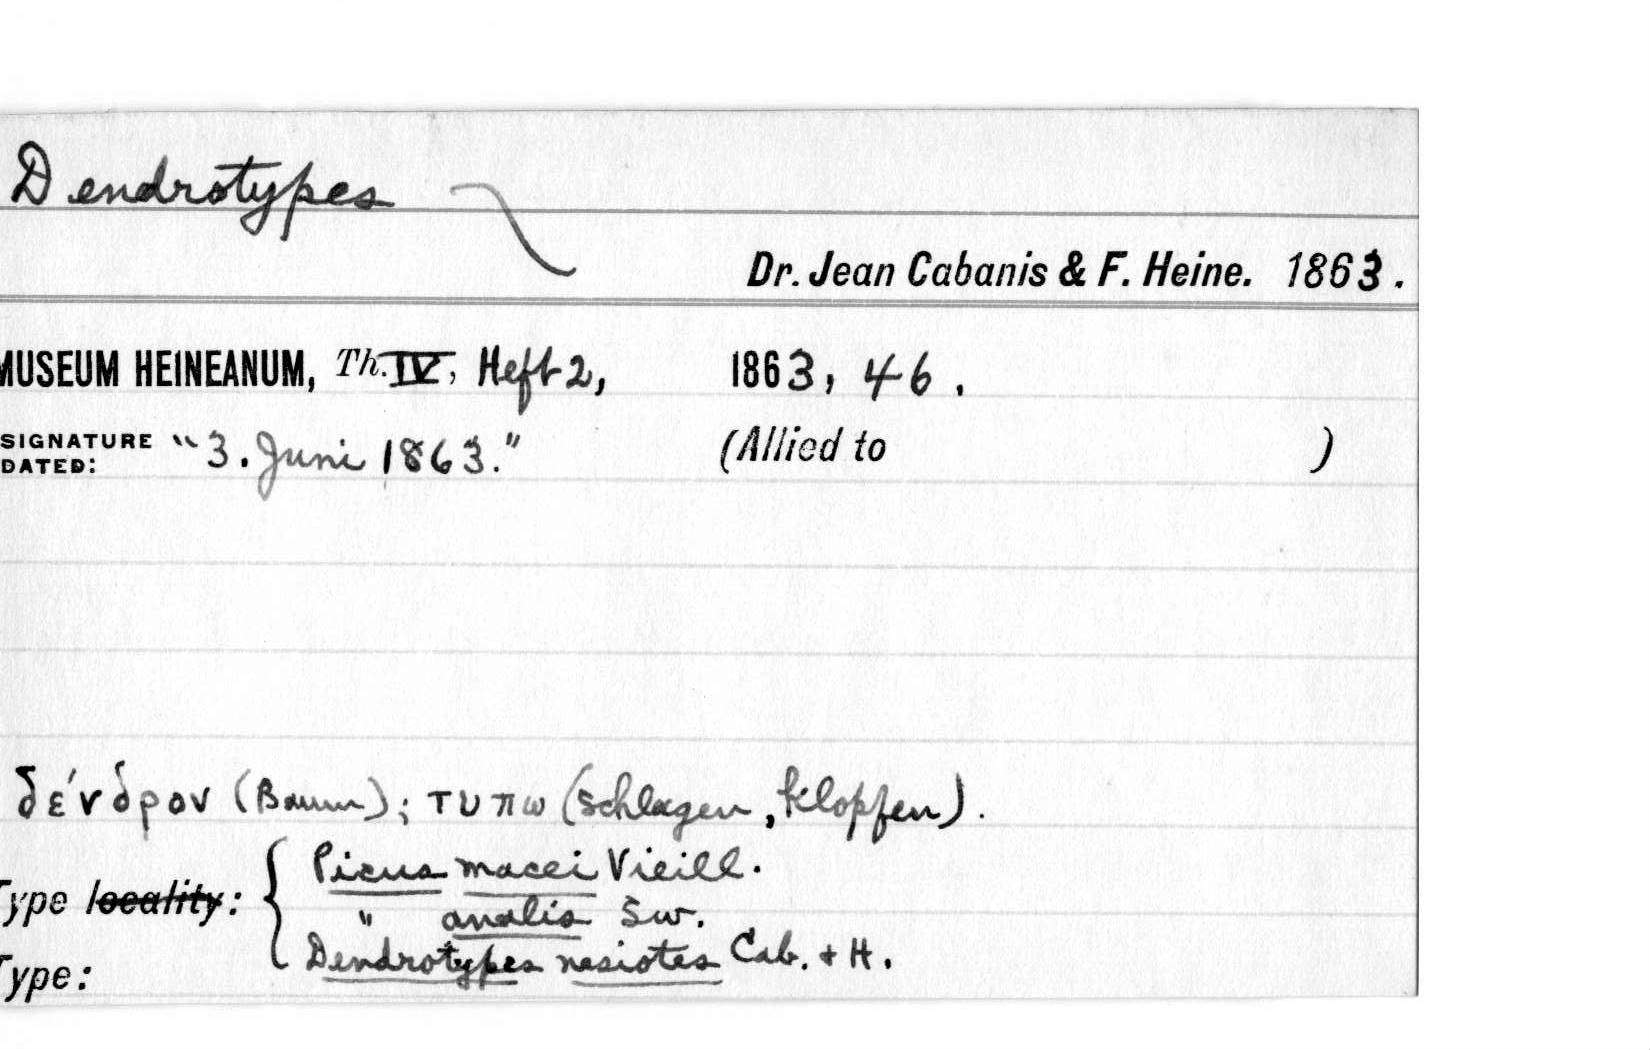 Dendrotypes
Dr. Jean Cabanis & F. Heine. 1863.
MUSEUM HEINEANUM, Th. IV, Heft 2, 1863, 46.
SIGNATURE DATED: "3. Juni 1863." (Allied to )
δένδρον (Baum); τυπω (schlagen, klopfen).
Type locality: { Picus macei Vieill.
" analis Sw.
Dendrotypes nesiotes Cab. + H.
Type: